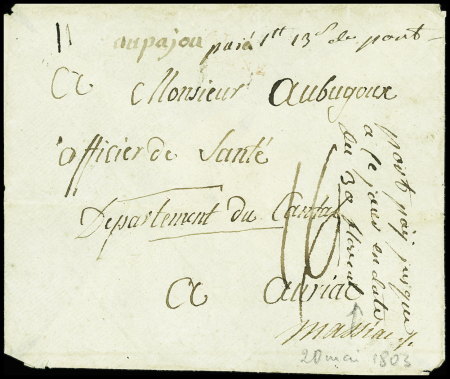 11 aupajou paié 1tt 13s de port
A Monsieur Aubugoux
officier de Santé
Departement du Cantal
A auriac
16
port payé jusque
a ce jour en date
du 30 floreal
massiac
20 mai 1803